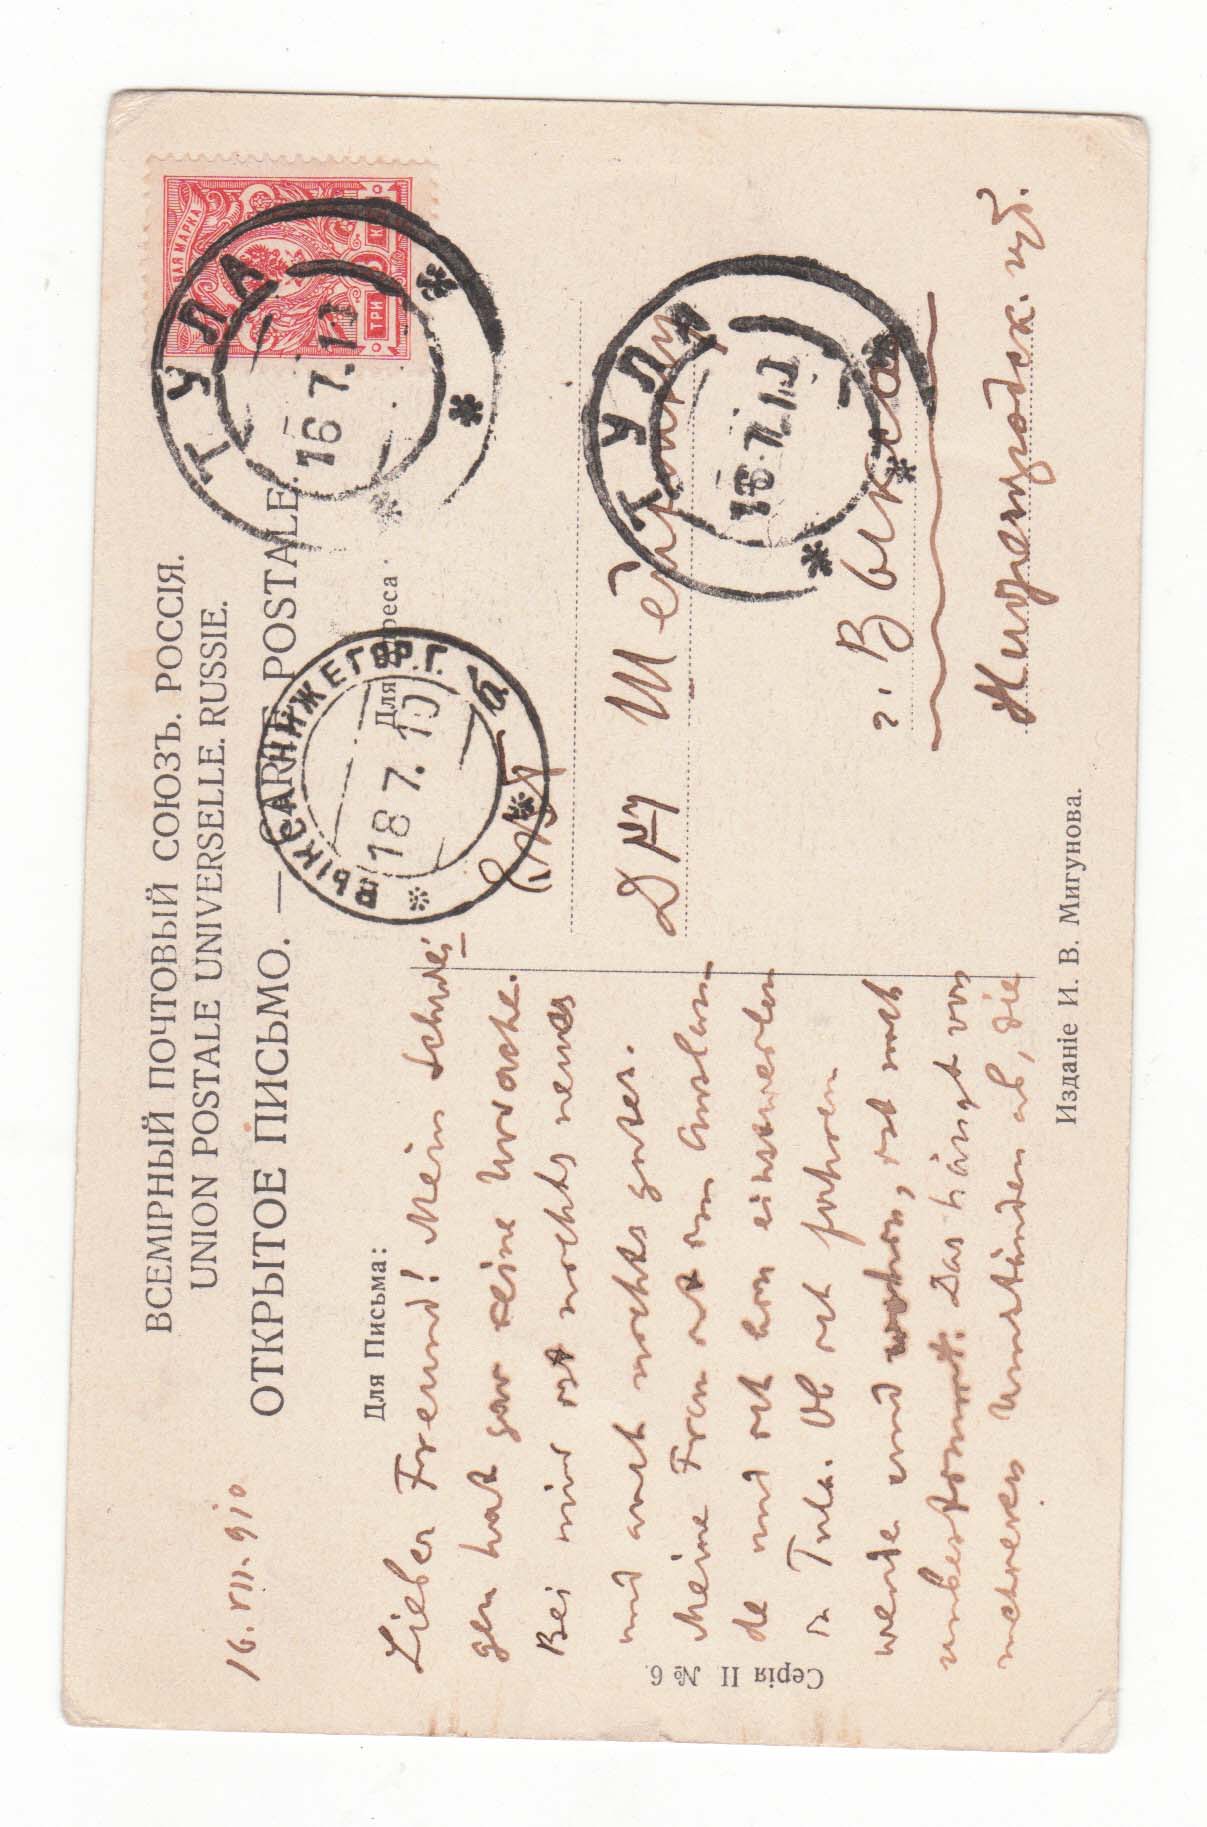 ВСЕМІРНЫЙ ПОЧТОВЫЙ СОЮЗЪ. РОССІЯ.
UNION POSTALE UNIVERSELLE. RUSSIE.
ОТКРЫТОЕ ПИСЬМО. — CARTE POSTALE.
16. VII. 910
Для Письма:
Lieber Freund! Mein Schwei-
gen hat gar keine Ursache.
Bei mir ist nichts neues
und auch nichts gutes.
Meine Frau ist im Auslan
de und ich bin einstweilen
in Tula. Ob ich fahren
werde und wohin, ist noch
unbestimmt. Das hängt von
mehreren Umständen ab, die
Серія II № 6.
Для Адреса
МАРКА
ТРИ
ТУЛА
16 7. 10
ВЫКСА НИЖЕГОР. Г.
18 7. 10
ТУЛА
16 7. 10
Д-ру
г. Выкса
Нижегородск. губ.
Изданіе И. В. Мигунова.